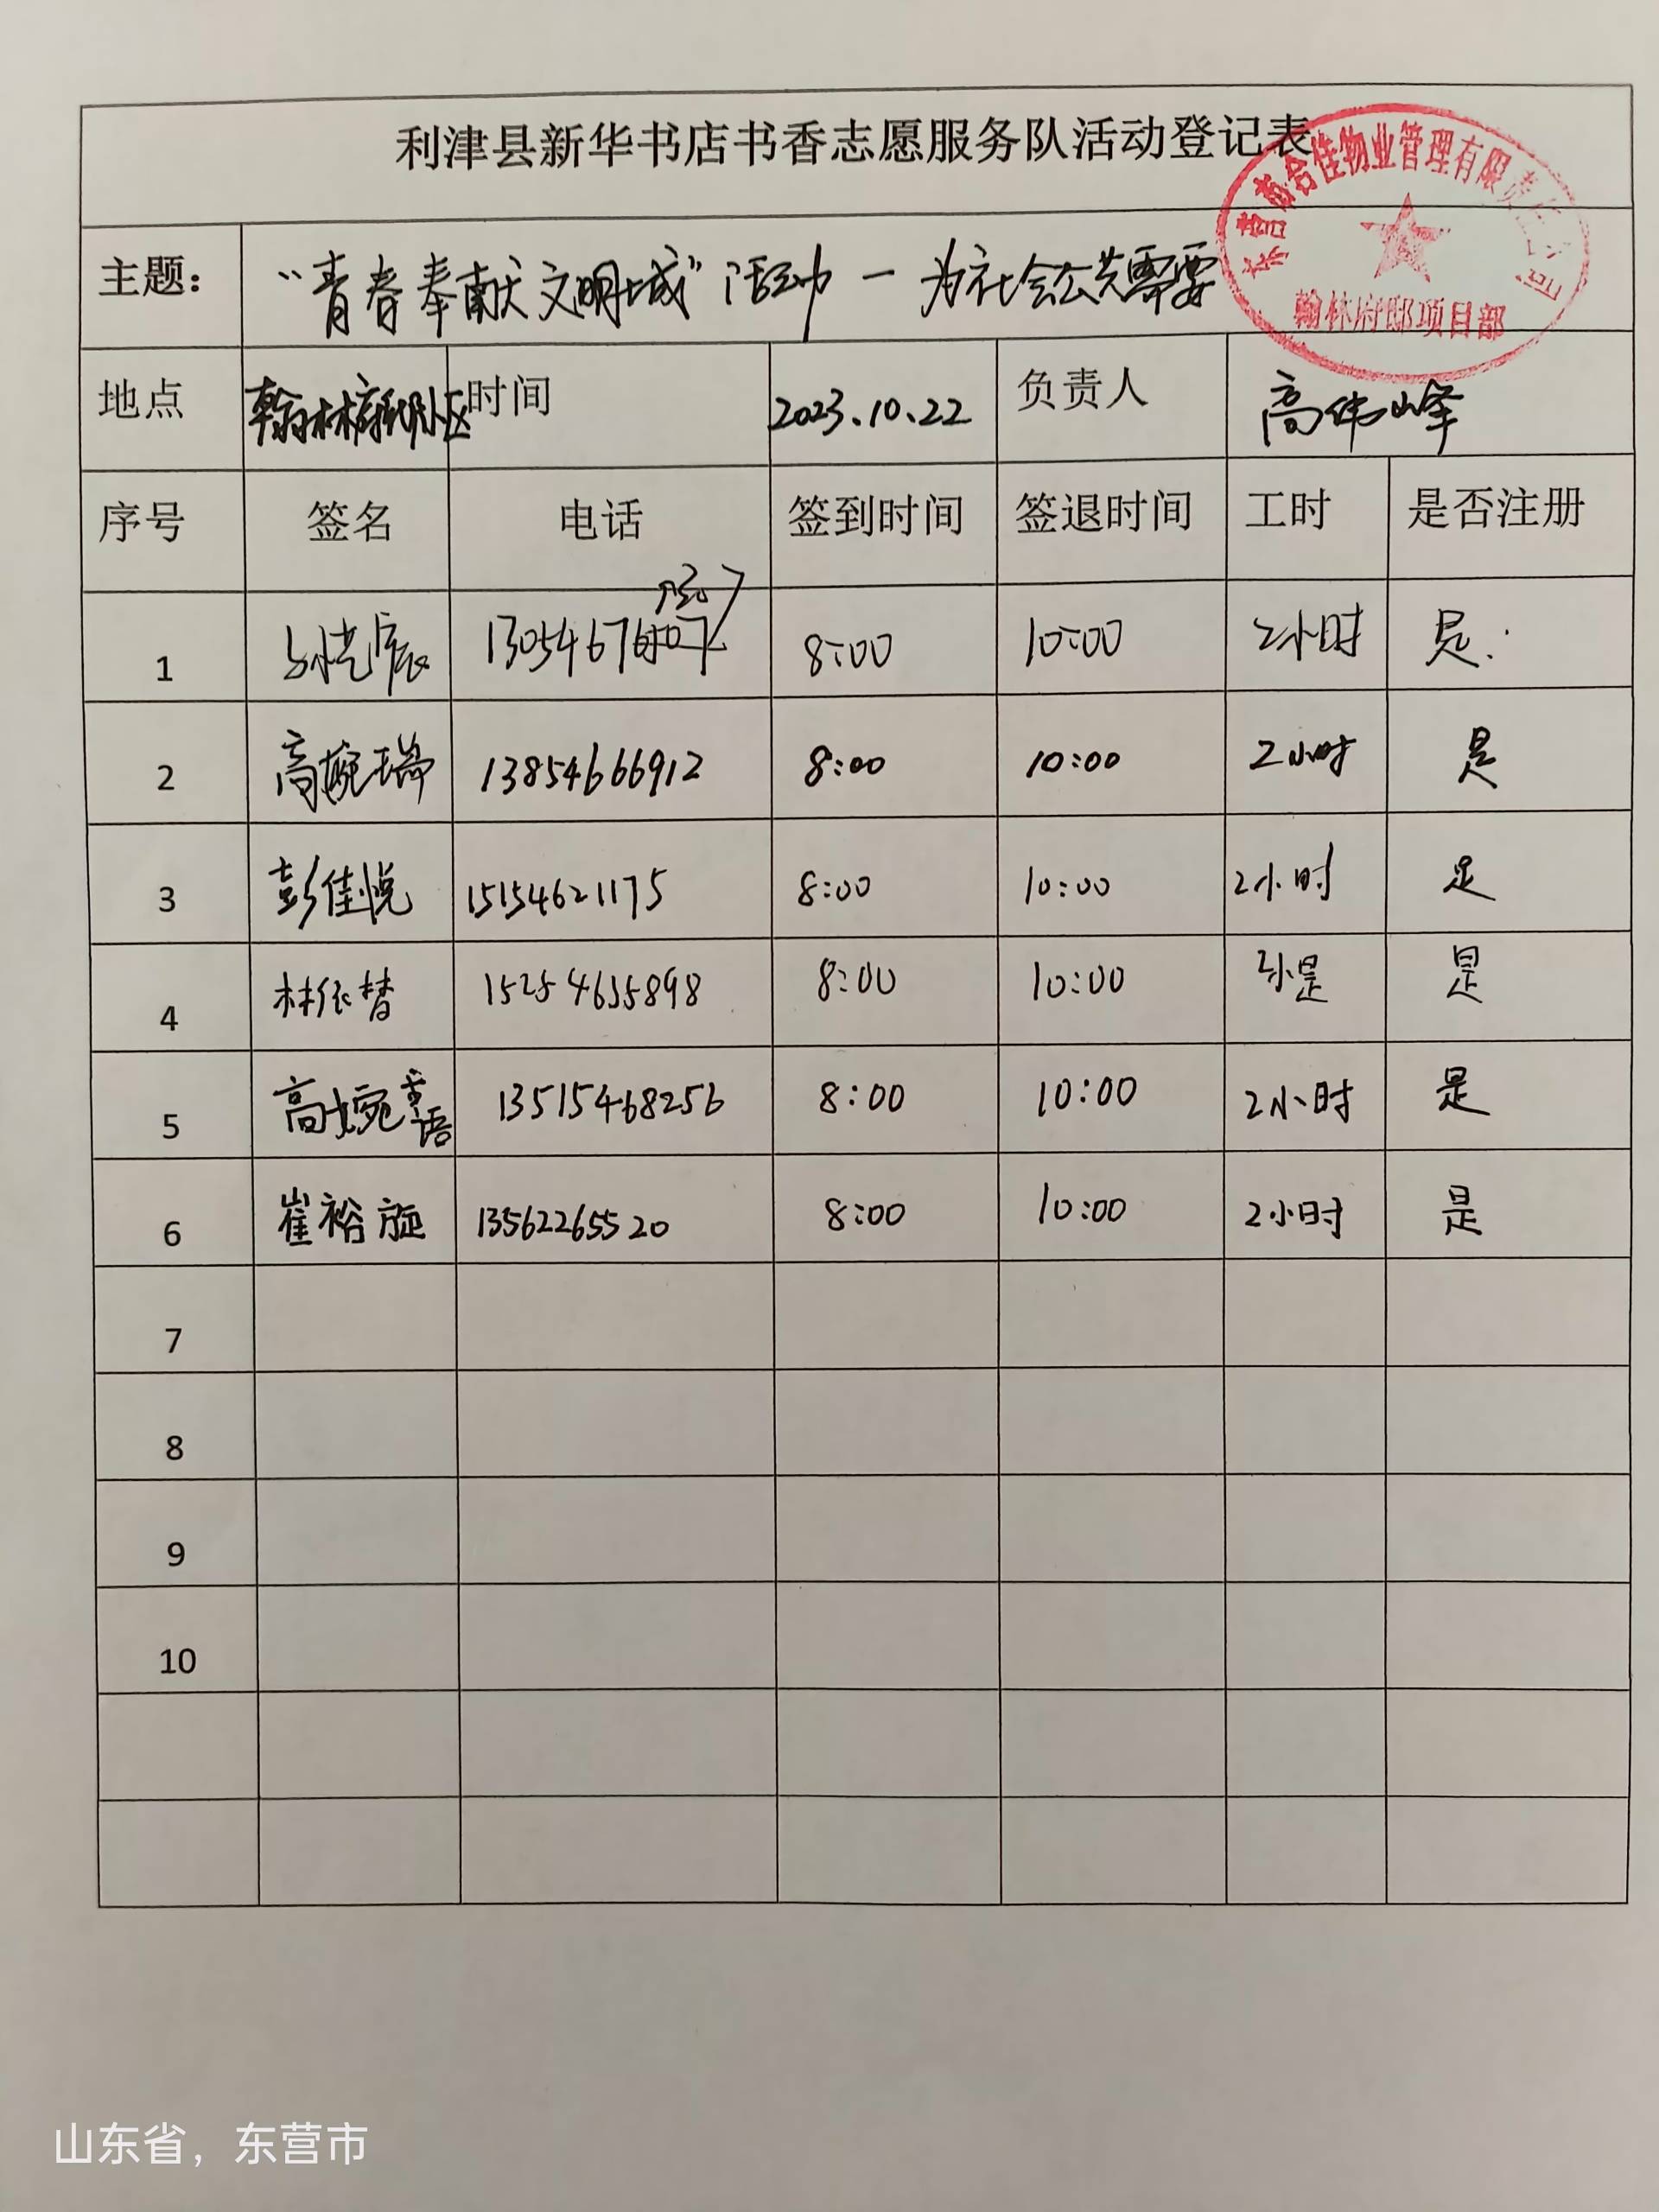 利津县新华书店书香志愿服务队活动登记表
东营市合佳物业管理有限责任公司
翰林府邸项目部
主题： “青春奉献文明城”活动 — 为社会公共需要
地点 翰林府邸小区 时间 2023.10.22 负责人 高伟峰
序号 签名 电话 签到时间 签退时间 工时 是否注册
1 8:00 10:00 2小时 是.
2 高婉瑞 13854666912 8:00 10:00 2小时 是
3 彭佳悦 15154621175 8:00 10:00 2小时 是
4 林依 15254655898 8:00 10:00 是
5 高婉语 13515468256 8:00 10:00 2小时 是
6 崔裕旋 13562265520 8:00 10:00 2小时 是
7
8
9
10
山东省，东营市